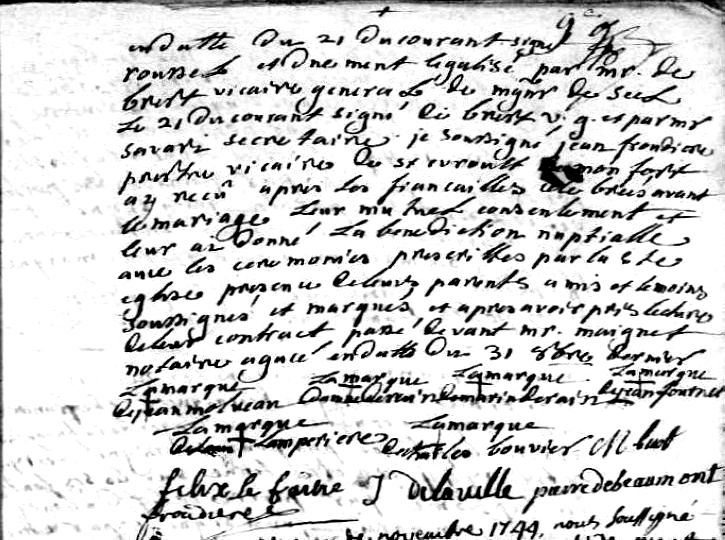 en datte du 21 du courant signé
roussel et duement legalisé par mr. de
brest vicaire general de mgnr de seel
le 21 du courant signé de brest v. g. et par mr
savari secretaire je soussigné jean froudiere
prestre vicaire de st evroult de mon fort
ay recu apres les fiancailles celebrees avant
le mariage leur mutuel consentement et
leur ay donné la benediction nuptialle
avec les ceremonies prescrittes par la ste
eglise presence de leurs parents amis et temoins
soussignés et marqués et apres avoir pris lecture
de leur contract passé devant mr. maignet
notaire a gacé en datte du 31 8bre dernier
la marque la marque la marque la marque
de jean de marin de jean fournier
la marque la marque
lamperiere de charles bouvier
felix le faivre J delaville pierre debeaumont
froudiere
de novembre 1744, nous soussigné